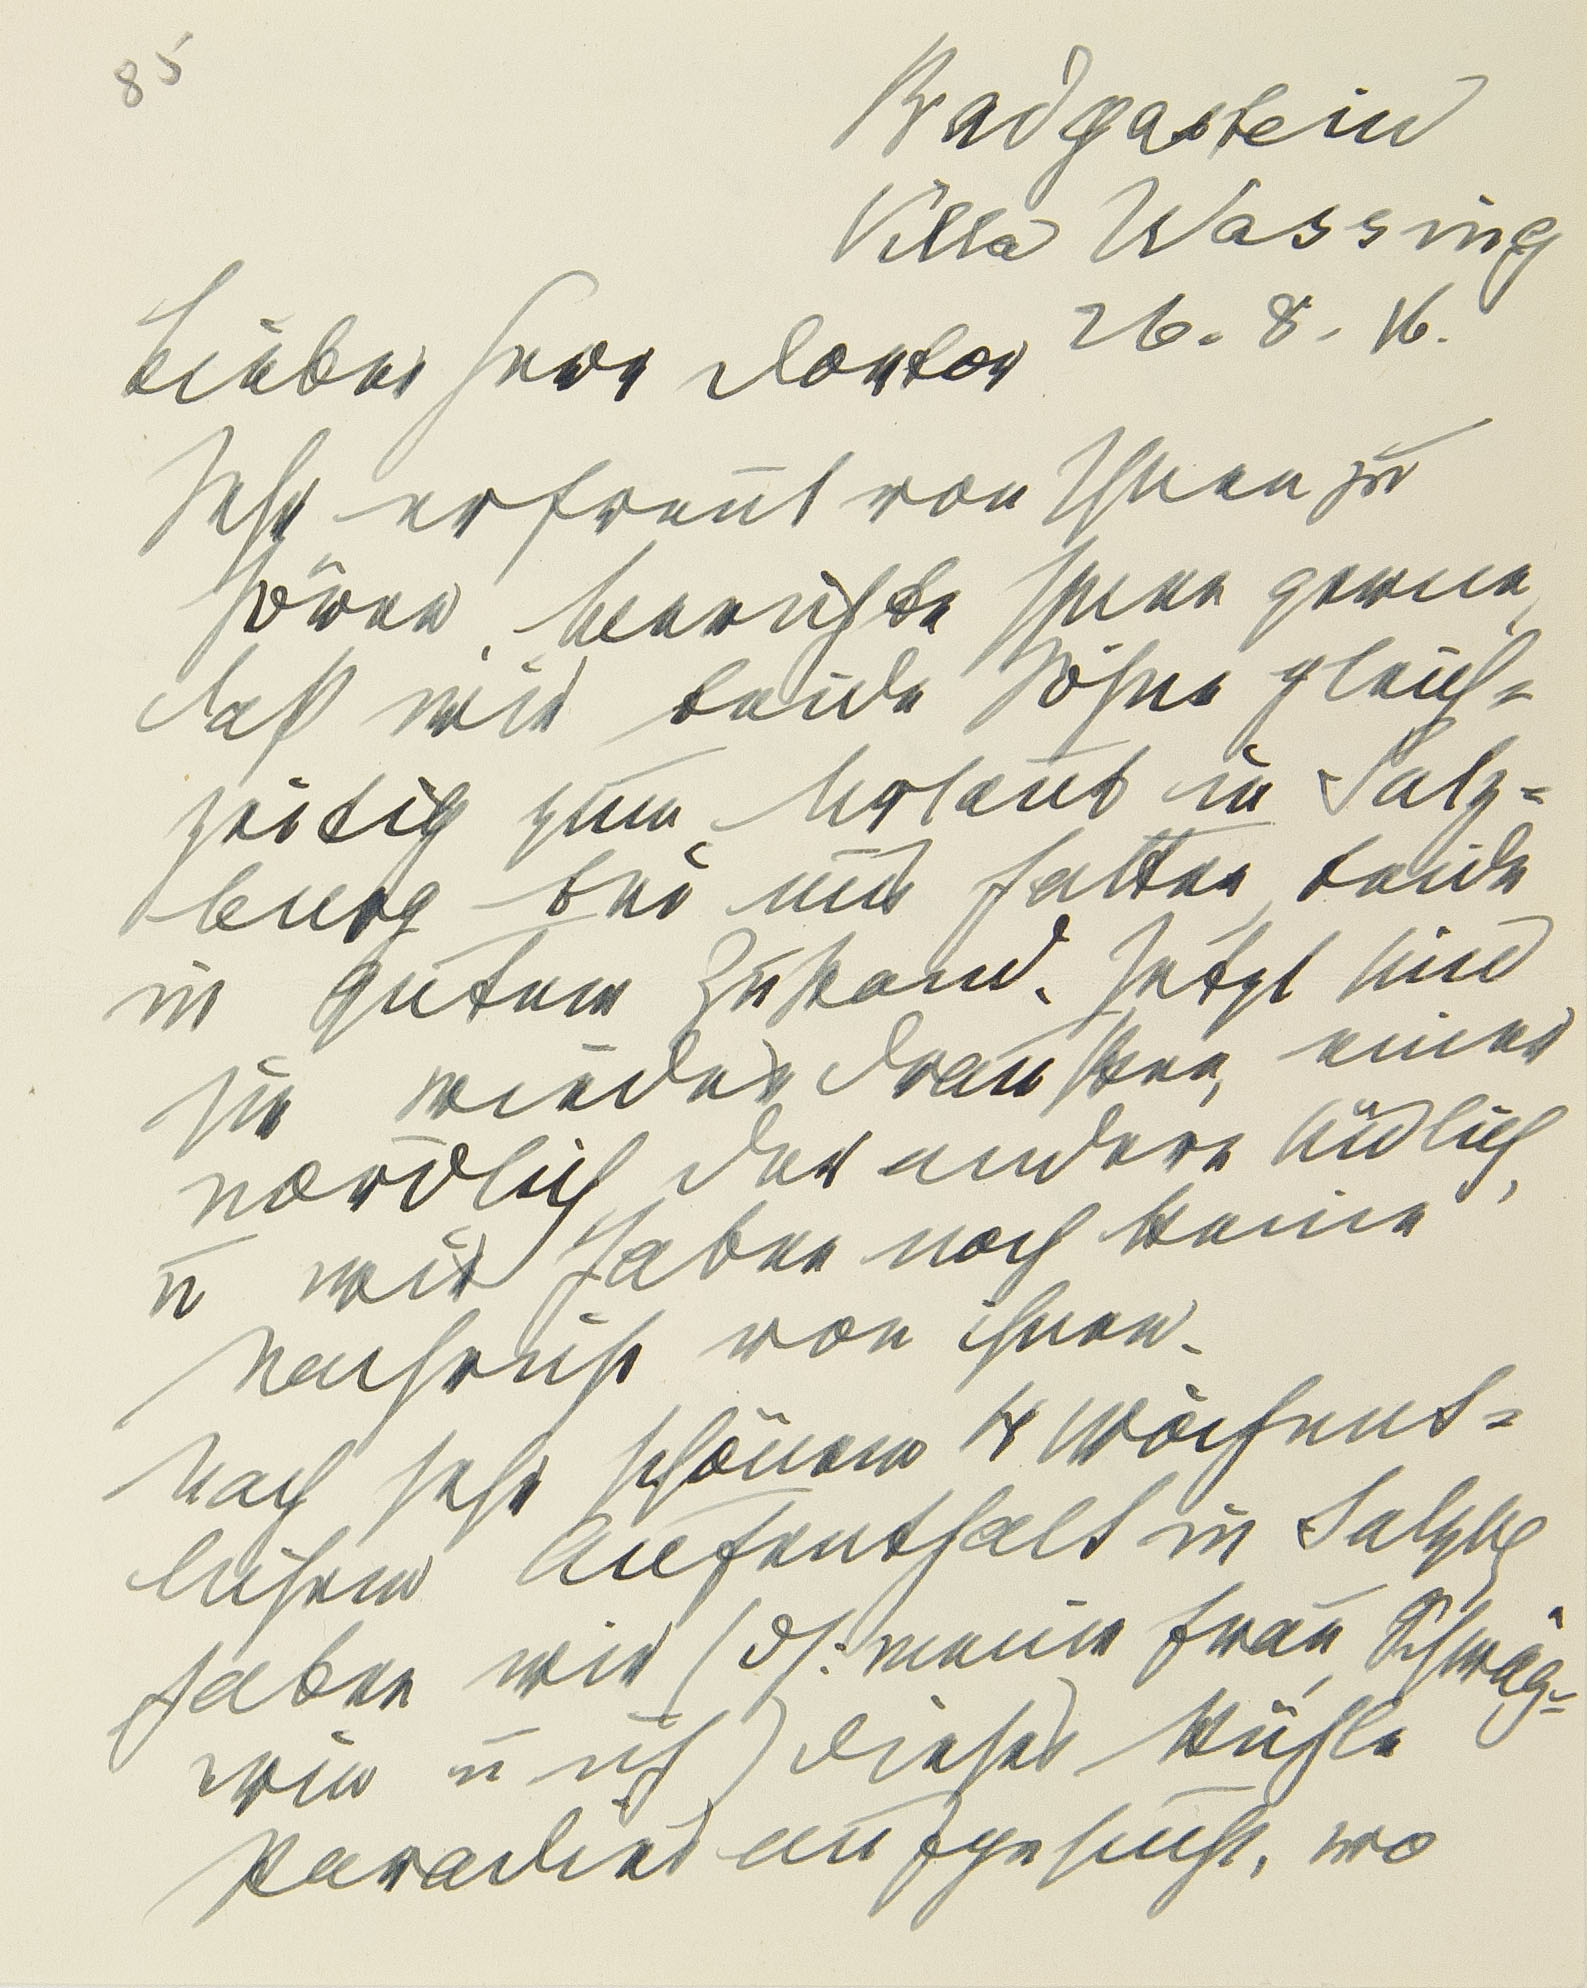 85
Badgastein
Villa Wassing
26. 8. 16.
Lieber Herr Doktor
Sehr erfreut von Ihnen zu
hören, berichte Ihnen gerne,
daß wir beide Söhne gleich=
zeitig zum Urlaub in Salz=
burg bei uns hatten, beide
in gutem Zustand. Jetzt sind
sie wieder draußen, einer
nördlich der andere südlich,
u wir haben noch keine
Nachricht von ihnen.
Nach sehr schönem 4 wöchent=
lichem Aufenthalt in Salzbg
haben wir (dh: meine Frau, Schwäg=
erin u ich) dieses kühle
Paradies aufgesucht, wo